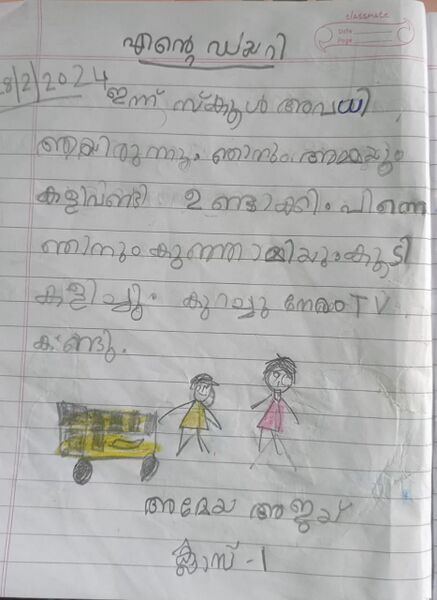 classmate
Date
Page
എന്റെ ഡയറി
8/2/2024
ഇന്ന് സ്കൂൾ അവധി
ആയിരുന്നു. ഞാനും അമ്മയും
കളിവണ്ടി ഉണ്ടാക്കി. പിന്നെ
ഞാനും കുഞ്ഞാമിയും കൂടി
കളിച്ചു. കുറച്ചു നേരം TV
കണ്ടു.
അമേയ അജയ്
ക്ലാസ് -1